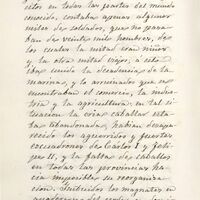 citos en todas las partes del mundo
conocido, contaba apenas algunos
miles de soldados, que no pasa-
ban de veinte mil hombres, de
los cuales la mitad eran niños
y la otra mitad viejos; á esto
iba unida la decadencia de la
marina, y lo arruinados que se
encontraban el comercio, la indus-
tria y la agricultura: en tal si-
tuacion la cria caballar esta-
ba abandonada, habian desapa-
recido los aguerridos y fuertes
escuadrones de Carlos I y Feli-
pe II, y la falta de caballos
en todas las provincias ha-
cia imposible su reorganiza-
cion. Instruidos los magnates en